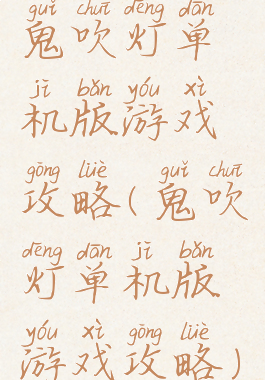 guǐ chuī dēng dān
鬼吹灯单
jī bǎn yóu xì
机版游戏
gōng lüè guǐ chuī
攻略(鬼吹
dēng dān jī bǎn
灯单机版
yóu xì gōng lüè
游戏攻略)